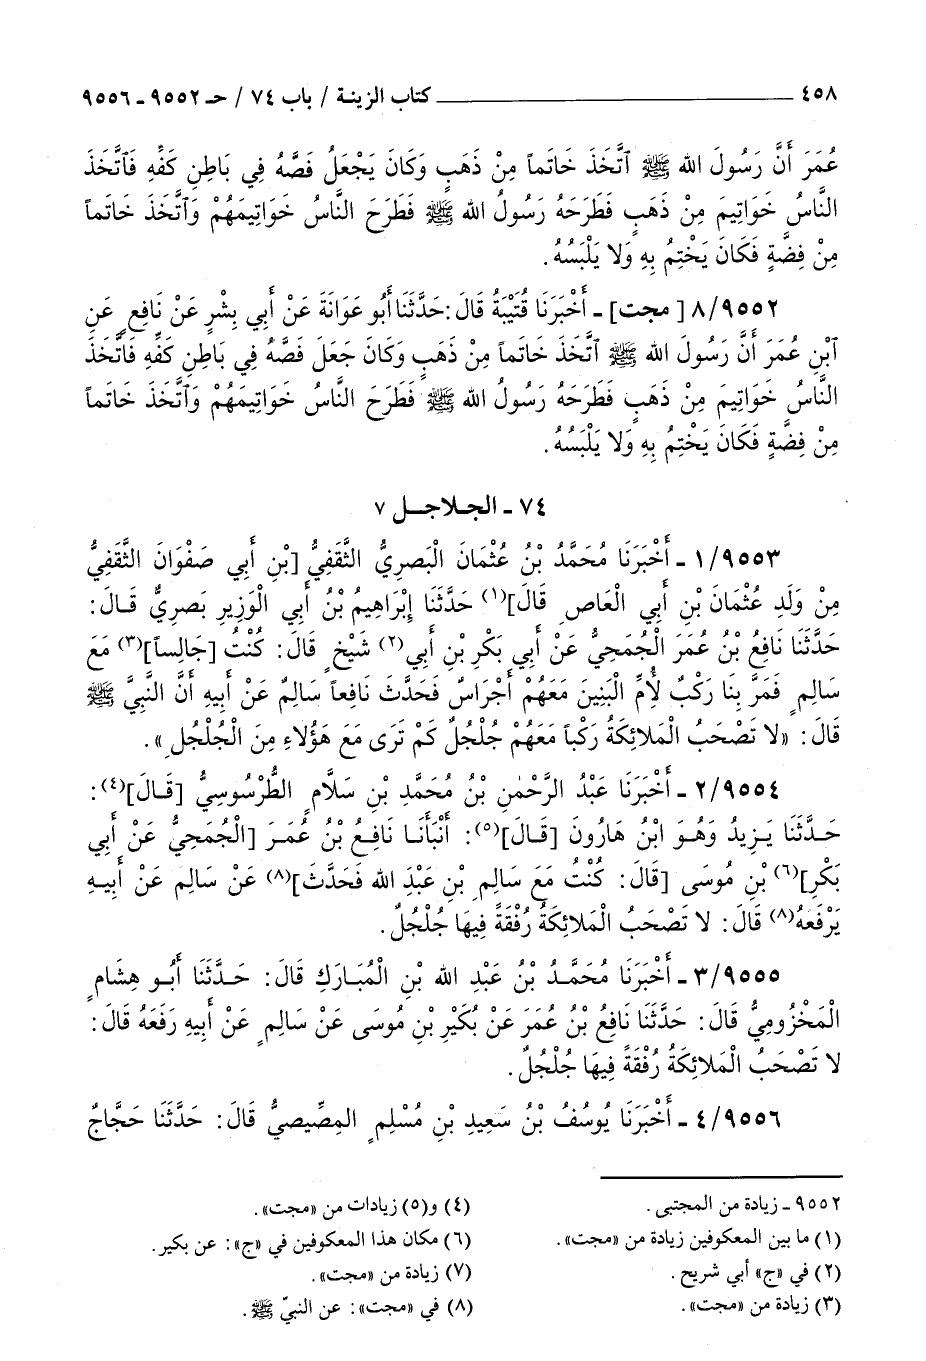 ٤٥٨ ـــــــــــــــــــــ كتاب الزينة / باب ٧٤ / حـ ٩٥٥٢ ـ ٩٥٥٦
عُمَرَ أَنَّ رَسُولَ الله ﷺ ٱتَّخَذَ خَاتَماً مِنْ ذَهَبٍ وَكَانَ يَجْعَلُ فَصَّهُ فِي بَاطِنِ كَفِّهِ فَٱتَّخَذَ
النَّاسُ خَوَاتِيمَ مِنْ ذَهَبٍ فَطَرَحَهُ رَسُولُ الله ﷺ فَطَرَحَ النَّاسُ خَوَاتِيمَهُمْ وَٱتَّخَذَ خَاتماً
مِنْ فِضَّةٍ فَكَانَ يَخْتِمُ بِهِ وَلا يَلْبَسُهُ.
٨/٩٥٥٢ [مجت] ـ أَخْبَرَنَا قُتَيْبَةُ قَالَ: حَدَّثَنَا أَبُو عَوَانَةَ عَنْ أَبِي بِشْرٍ عَنْ نَافِعٍ عَنِ
ٱبْنِ عُمَرَ أَنَّ رَسُولَ الله ﷺ ٱتَّخَذَ خَاتَماً مِنْ ذَهَبٍ وَكَانَ جَعَلَ فَصَّهُ فِي بَاطِنِ كَفِّهِ فَاتَّخَذَ
النَّاسُ خَوَاتِيمَ مِنْ ذَهَبٍ فَطَرَحَهُ رَسُولُ الله ﷺ فَطَرَحَ النَّاسُ خَوَاتِيمَهُمْ وَٱتَّخَذَ خَاتَماً
مِنْ فِضَّةٍ فَكَانَ يَخْتِمُ بِهِ وَلا يَلْبَسُهُ.
٧٤ ـ الجلاجل ٧
١/٩٥٥٣ ـ أَخْبَرَنَا مُحَمَّدُ بْنُ عُثْمَانَ الْبَصرِيُّ الثَّقَفِيُّ [بْنِ أَبِي صَفْوَانَ الثَّقَفِيُّ
مِنْ وَلَدِ عُثْمَانَ بْنِ أَبِي الْعَاصِ قَالَ](١) حَدَّثَنَا إِبْرَاهِيمُ بْنُ أَبِي الْوَزِيرِ بَصرِيٌّ قَالَ:
حَدَّثَنَا نَافِعُ بْنُ عُمَرَ الْجُمَحِيُّ عَنْ أَبِي بَكْرِ بْنِ أَبِي(٢) شَيْخٍ قَالَ: كُنْتُ [جَالِساً](٣) مَعَ
سَالِمٍ فَمَرَّ بِنَا رَكْبٌ لأُمِّ الْبَنِينَ مَعَهُمْ أَجْرَاسٌ فَحَدَّثَ نَافِعاً سَالِمٌ عَنْ أَبِيهِ أَنَّ النَّبِيَّ ﷺ
قَالَ: «لا تَصْحَبُ الْمَلائِكَةُ رَكْباً مَعَهُمْ جُلْجُلٌ كَمْ تَرَى مَعَ هَؤُلاءِ مِنَ الْجُلْجُلِ».
٢/٩٥٥٤ ـ أَخْبَرَنَا عَبْدُ الرَّحْمٰنِ بْنُ مُحَمَّدِ بْنِ سَلَّامٍ الطَّرْسُوسِيُّ [قَالَ](٤):
حَدَّثَنَا يَزِيدُ وَهُوَ ابْنُ هَارُونَ [قَالَ](٥): أَنْبَأَنَا نَافِعُ بْنُ عُمَرَ [الْجُمَحِيُّ عَنْ أَبِي
بَكْرِ](٦) بْنِ مُوسَى [قَالَ: كُنْتُ مَعَ سَالِمِ بْنِ عَبْدِ الله فَحَدَّثَ](٨) عَنْ سَالِمٍ عَنْ أَبِيهِ
يَرْفَعهُ(٨) قَالَ: لا تَصْحَبُ الْمَلائِكَةُ رُفْقَةً فِيهَا جُلْجُلٌ.
٣/٩٥٥٥ ـ أَخْبَرَنَا مُحَمَّدُ بْنُ عَبْدِ الله بْنِ الْمُبَارَكِ قَالَ: حَدَّثَنَا أَبُو هِشَامٍ
الْمَخْزُومِيُّ قَالَ: حَدَّثَنَا نَافِعُ بْنُ عُمَرَ عَنْ بُكَيْرِ بْنِ مُوسَى عَنْ سَالِمٍ عَنْ أَبِيهِ رَفَعَهُ قَالَ:
لا تَصْحَبُ الْمَلائِكَةُ رُفْقَةً فِيهَا جُلْجُلٌ.
٤/٩٥٥٦ ـ أَخْبَرَنَا يُوسُفُ بْنُ سَعِيدِ بْنِ مُسْلِمٍ المِصِّيصيُّ قَالَ: حَدَّثَنَا حَجَّاجٌ
٩٥٥٢ ـ زيادة من المجتبى.
(١) ما بين المعكوفين زيادة من «مجت».
(٢) في «ج» أبي شريح.
(٣) زيادة من «مجت».
(٤) و(٥) زيادات من «مجت».
(٦) مكان هذا المعكوفين في «ج»: عن بكير.
(٧) زيادة من «مجت».
(٨) في «مجت»: عن النبيّ ﷺ.